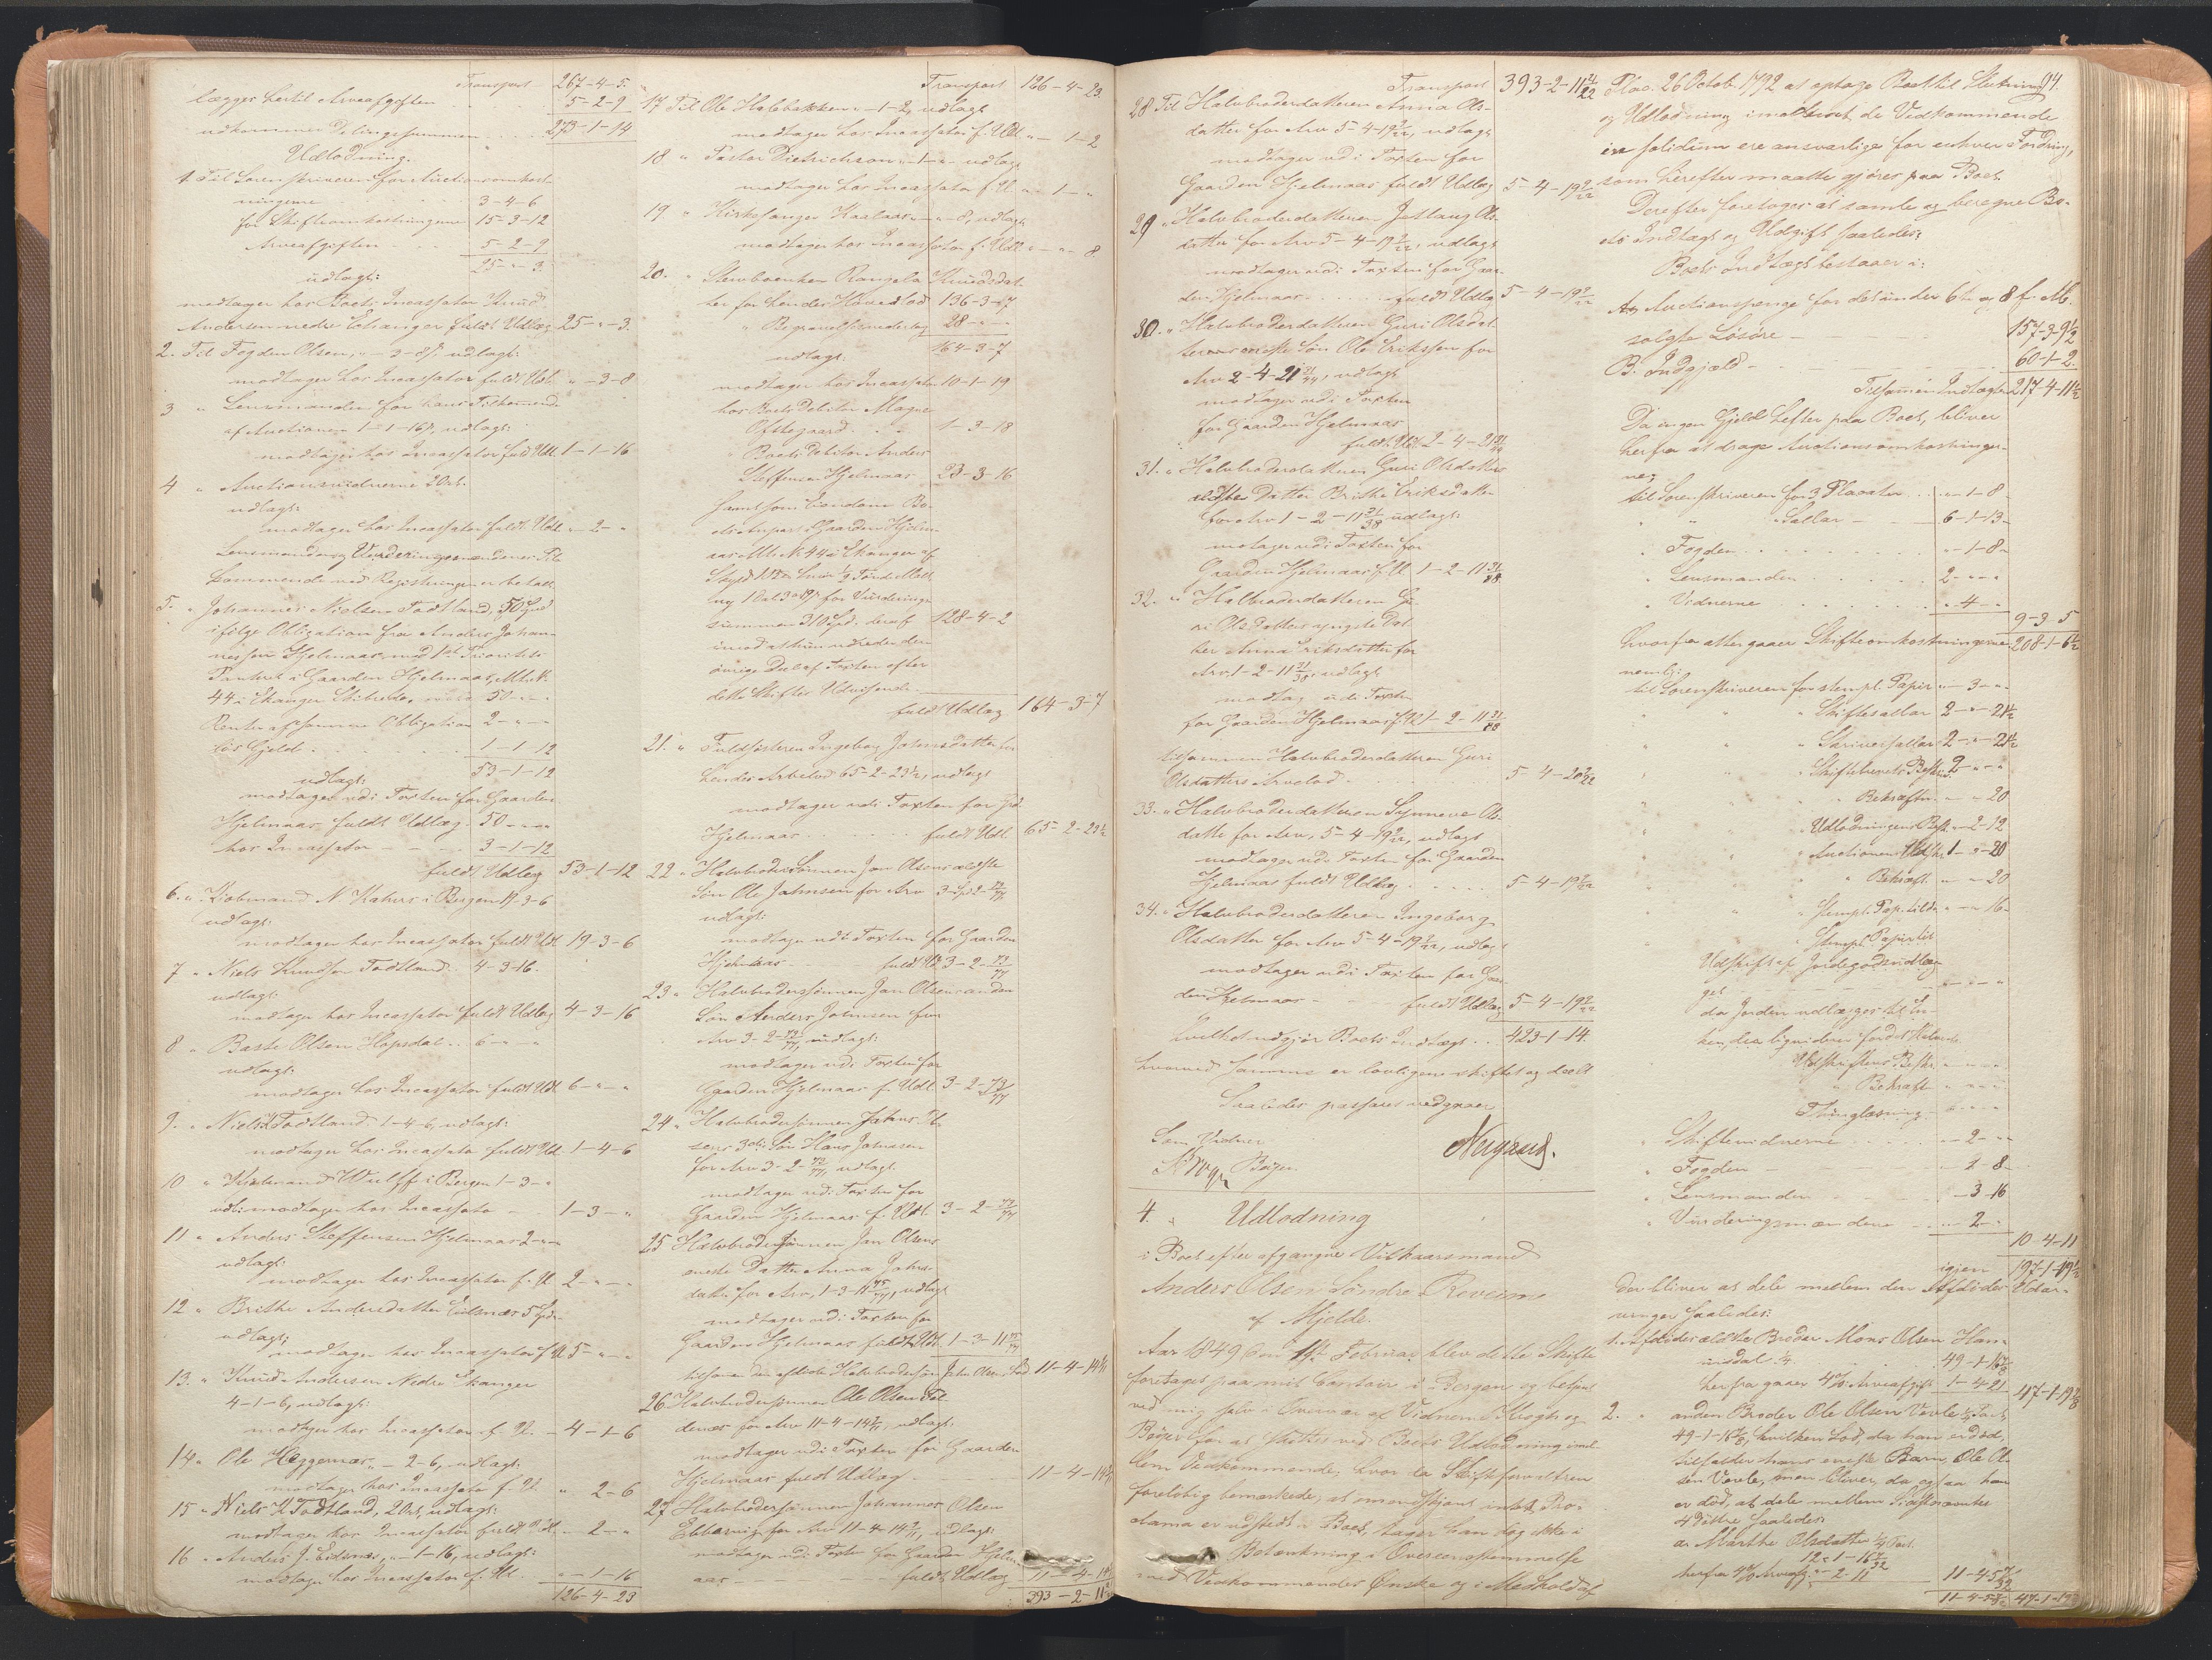 Transport 267-4-5.
lægges hertil Arveafgiften 5-2-9
udkommer Delingssummen 273-1-14
Udlodning.
1. Til Sorenskriveren for Auctionsomkost-
ningerne 3-4-6
for Skifteomkostningerne 15-3-12
Arveafgiften 5-2-9
25-"-3.
udlagt:
modtager hos Boets Incassator Knud
Andersen nedre Echanger fuldt Udlæg 25-"-3.
2. Til Fogden Olsen, "-3-8, udlagt:
modtager hos Incassator fuldt Udl. "-3-8
3 " Lensmanden for hans Tilkommend.
af Auctionen 1-1-16, udlagt:
modtager hos Incassator fuld Udl. 1-1-16
4 " Auctionsvidnerne 2 Ort.
udlagt:
modtager hos Incassator fuldt Udl. "-2-"
Lensmandens og Vurderingsmændenes Til-
kommende ved Registreringen er betalt.
5. " Johannes Nielsen Todtland, 50 Spd
ifølge Obligation fra Anders Johan-
nessen Hjelmaas med 1ste Prioritets
Panteret i Gaarden Hjelmaas, Mtr. N.
44 i Echanger Skibrede, 50-"-"
Renter af samme Obligation 2-"-"
løs Gjeld 1-1-12
53-1-12
udlagt:
modtager udi Taxten for Gaarden
Hjelmaas fuldt Udlæg 50-"-"
hos Incassator 3-1-12
fuldt Udlæg 53-1-12
6. " Kiøbmand N Kahrs i Bergen 19-3-6
udlagt:
modtager hos Incassator fuldt Udl. 19-3-6
7 " Niels Knudsen Todtland 4-3-16.
udlagt:
modtager hos Incassator fuldt Udlæg 4-3-16
8 " Baste Olsen Hopsdal 6-"-"
udlagt:
modtager hos Incassator fuldt Udl. 6-"-"
9. " Niels Todtland 1-4-6, udlagt:
modtager hos Incassator fuldt Udl. 1-4-6
10 " Kiøbmand Wulff i Bergen 1-3-"
udl: modtager hos Incassator 1-3-"
11 " Anders Steffensen Hjelmaas 2-"-"
udlagt:
modtager hos Incassator f. U. 2-"-"
12 " Brithe Andersdatter Eidsnæs 5 Spd.
udlagt:
modtager hos Incassator f. U. 5-"-"
13. " Knud Andersen Nedre Echanger
4-1-6, udlagt:
modtager hos Incassator f. U. 4-1-6
14 " Ole Heggernæs, "-2-6, udlagt:
modtager hos Incassator f. U. " 2-6
15 " Niels K Todtland, 2 Ort, udlagt:
modtager hos Incassator fuldt Udl. "-2-"
16 " Anders J. Eidsnæs, "-1-16, udlagt:
modtager hos Incassator f. Ul. "-1-16
126-4-23
Transport 126-4-23.
17 Til Ole Halvbakken "-1-2, udlagt
modtager hos Incassator f. Udl. "-1-2
18. " Pastor Dietrichson "-1-" udlagt
modtager hos Incassator f. U. "-1-"
19. " Kirkesanger Kaalaas "-"-8, udlagt
modtager hos Incassator f. Udl. "-"-8.
20. " Stervboenken Rangela Knudsdat-
ter for hendes Hovedlod 136-3-7
" Begravelsesudlæg 28-"-"
164-3-7
udlagt:
modtager hos Incassator 10-1-19
hos Boets Debitor Magne
Oftegaard 1-3-18
" Boets Debitor Anders
Steffensen Hjelmaas 23-3-16
samt som Eiendom Bo-
ets Anpart i Gaarden Hjelm-
aas Mtr. N. 44 i Echanger af
for Vurderings-
summen 310 Spd. deraf 128-4-2
imod at hun udreder den
øvrige Deel af Taxten efter
dette Skiftes Udvisende.
fuldt Udlæg 164-3-7
21. " Fuldsøsteren Ingeborg Johnsdatter for
hendes Arvelod 65-2-23½, udlagt
modtager udi Taxten for Grd.
Hjelmaas fuldt Udl. 65-2-23½
22 " Halvbrodersønnen Jan Olsens ældste
Søn Ole Jahnsen for Arv 3-2-73/77
udlagt:
modtager udi Taxten for Gaarden
Hjelmaas fuldt U. 3-2-73/77
23 " Halvbrodersønnen Jan Olsens anden
Søn Anders Johnsen for
Arv 3-2-73/77, udlagt:
modtager udi Taxten for
Gaarden Hjelmaas f. Udl. 3-2-73/77
24 " Halvbrodersønnen Jahns Ol-
sens 3die Søn Hans Jahnsen
for Arv 3-2-73/77, udlagt.
modtager udi Taxten for
Gaarden Hjelmaas f. Udl. 3-2-73/77
25 Halvbrodersønnen Jan Olsens
eneste Datter Anna Jahns-
datter for Arv, 1-3-11 75/77, udlagt
modtager udi Taxten for
Gaarden Hjelmaas fuldt Udl. 1-3-11 75/77
tilsammen den afdøde Halvbrodersøn Jahn Olsens Lod 11-4-14 4/11
26 Halvbrodersønnen Ole Olsen Til
for Arv 11-4-14 4/11, udlagt:
modtager udi Taxten for Gaarden
Hjelmaas fuldt Udlæg 11-4-14 4/11
27 Halvbrodersønnen Johannes Olsen
for Arv 11-4-14 4/11, udlagt:
modtager udi Taxten for Gaarden Hjelm-
aas fuldt Udlæg 11-4-14
393-2-11
Transport 393-2-11 21/22
28 Til Halvbroderdatteren Anna Ols-
datter for Arv 5-4-19 2/22, udlagt
modtager udi Taxten for
Gaarden Hjelmaas fuldt Udlæg 5-4-19 2/22
29 " Halvbroderdatteren Jestlaug Ols-
datter for Arv 5-4-19 2/22, udlagt
modtager udi Taxten for Gaar-
den Hjelmaas fuldt Udlæg 5-4-19 2/22
30. " Halvbroderdatteren Guri Olsdat-
ters eneste Søn Ole Eriksen for
Arv 2-4-21, udlagt
modtager udi Taxten
for Gaarden Hjelmaas
fuldt Udl. 2-4-21
31. " Halvbroderdatteren Guri Olsdatters
ældste Datter Brithe Eriksdatter
for Arv 1-2-11 udlagt:
motager udi Taxten for
Gaarden Hjelmaas f. U. 1-2-11
32. " Halbroderdatteren Gu-
ri Olsdatters yngste Dat-
ter Anna Eriksdatter for
Arv 1-2-11, udlagt
modtag. udi Taxten
for Gaarden Hjelmaas f. U. 1-2-11
tilsammen Halvbroderdatteren Guri
Olsdatters Arvelod 5-4-20
33. " Halvbroderdatteren Synneve Ols-
datter for Arv, 5-4-19 2/22, udlagt
modtager udi Taxten for Gaarden
Hjelmaas fuldt Udlæg 5-4-19 2/22
34. " Halvbroderdatteren Ingeborg
Olsdatter for Arv 5-4-19 2/22, udlagt
modtager udi Taxten for Gaar-
den Hjelmaas fuldt Udlæg 5-4-19 2/22
hvilket udgjør Boets Indtægt 423-1-14.
hvorved samme er lovligen skiftet og deelt
Saaledes passeret vedgaaer
Som Vidner
Krogh Bøyer. Neigaard.
4. " Udlodning
i Boet efter afgangne Vilkaarsmand
Anders Olsen Søndre Reveim
af Mjelde.
Aar 1849 den Februar blev dette Skifte
foretaget paa mit Contoir i Bergen og betjent
ved mig selv i Overvær af Vidnerne Krogh og
Bøyer for at slutte ved Boets Udlodning imel-
lem Vedkommende, hvor da Skifteforvalteren
foreløbig bemærkede, at omendskjønt intet Pro-
clama er udstedt i Boet, tager han dog ikke i
Betænkning i Overeensstemmelse
med Vedkommendes Ønske og i Medhold af
94.
Plac. 26 Octob. 1792 at optage Boet til Slutning
og Udlodning imod at de Vedkommende
in solidum ere ansvarlige for enhver Fordring,
som herefter maatte gjøres paa Boet.
Derefter foretoges at samle og beregne Bo-
ets Indtægt og Udgift saaledes:
Boets Indtægt bestaaer i:
A, Auctionspenge for det under 6te og 8 f. M.
solgte Løsøre 157-3-9½
B. Indgjæld 60-1-2.
Tilsammen Indtægt 217-4-11½
Da ingen Gjeld hefter paa Boet, bliver
herfra at drage Auctionsomkostninger-
ne,
til Sorenskriveren for 3 Placater "-1-8
" " Sallar 6-1-13
" Fogden "-1-8
" Lensmanden 2-"-"
" Vidnerne "-4-"
9-3-5
hvorfra attergaaer Skifteomkostningerne 208-1-6½
nemlig:
til Sorenskriveren for stempl. Papir "-3-"
" " Skiftesallar 2-"-21½
" " Skriversallar 2-"-21½
" " Skiftebrevets Beskr. 2-"-"
" " Bekræftn. "-"-20
" " Udlodningens Besk. "-2-12
" " Auctionens Udskr. 1-"-20
" " Bekræft. "-"-20
" " stempl. Pap. tildo "-"-16
" Stempl. Papir til
Udskrift af Jordegodsudlæg-
get "-"-"
da Jorden udlægges til En-
ken, der
Udskriftens Beskr. "-"-"
" Bekræft "-"-"
Thinglæsning "-"-"
" Skiftevidnerne "-2-"
" Fogden "-2-8
" Lensmanden "-3-16
" Vurderingsmændene "-2-"
10-4-11
igjen 197-1-19½
Der bliver at dele mellem den Afdødes Udar-
vinger saaledes:
1. Afdødes ældste Broder Mons Olsen Ham-
insdal ¼ 49-1-16
herfra gaaer 4% Arveafgift 1-4-21 47-1-19
2. " anden Broder Ole Olsen Vevle ¼ Part
49-1-16, hvilken Lod, da han er død,
tilfalder hans eneste Barn, Ole Ol-
sen Vevle, men bliver, da ogsaa han
er død, at dele mellem
4 Døttre saaledes:
a. Marthe Olsdatter ¼ Part
12-1-16
herfra 4% Arveafg. "-2-11 11-4-5
11-4-5 47-1-19